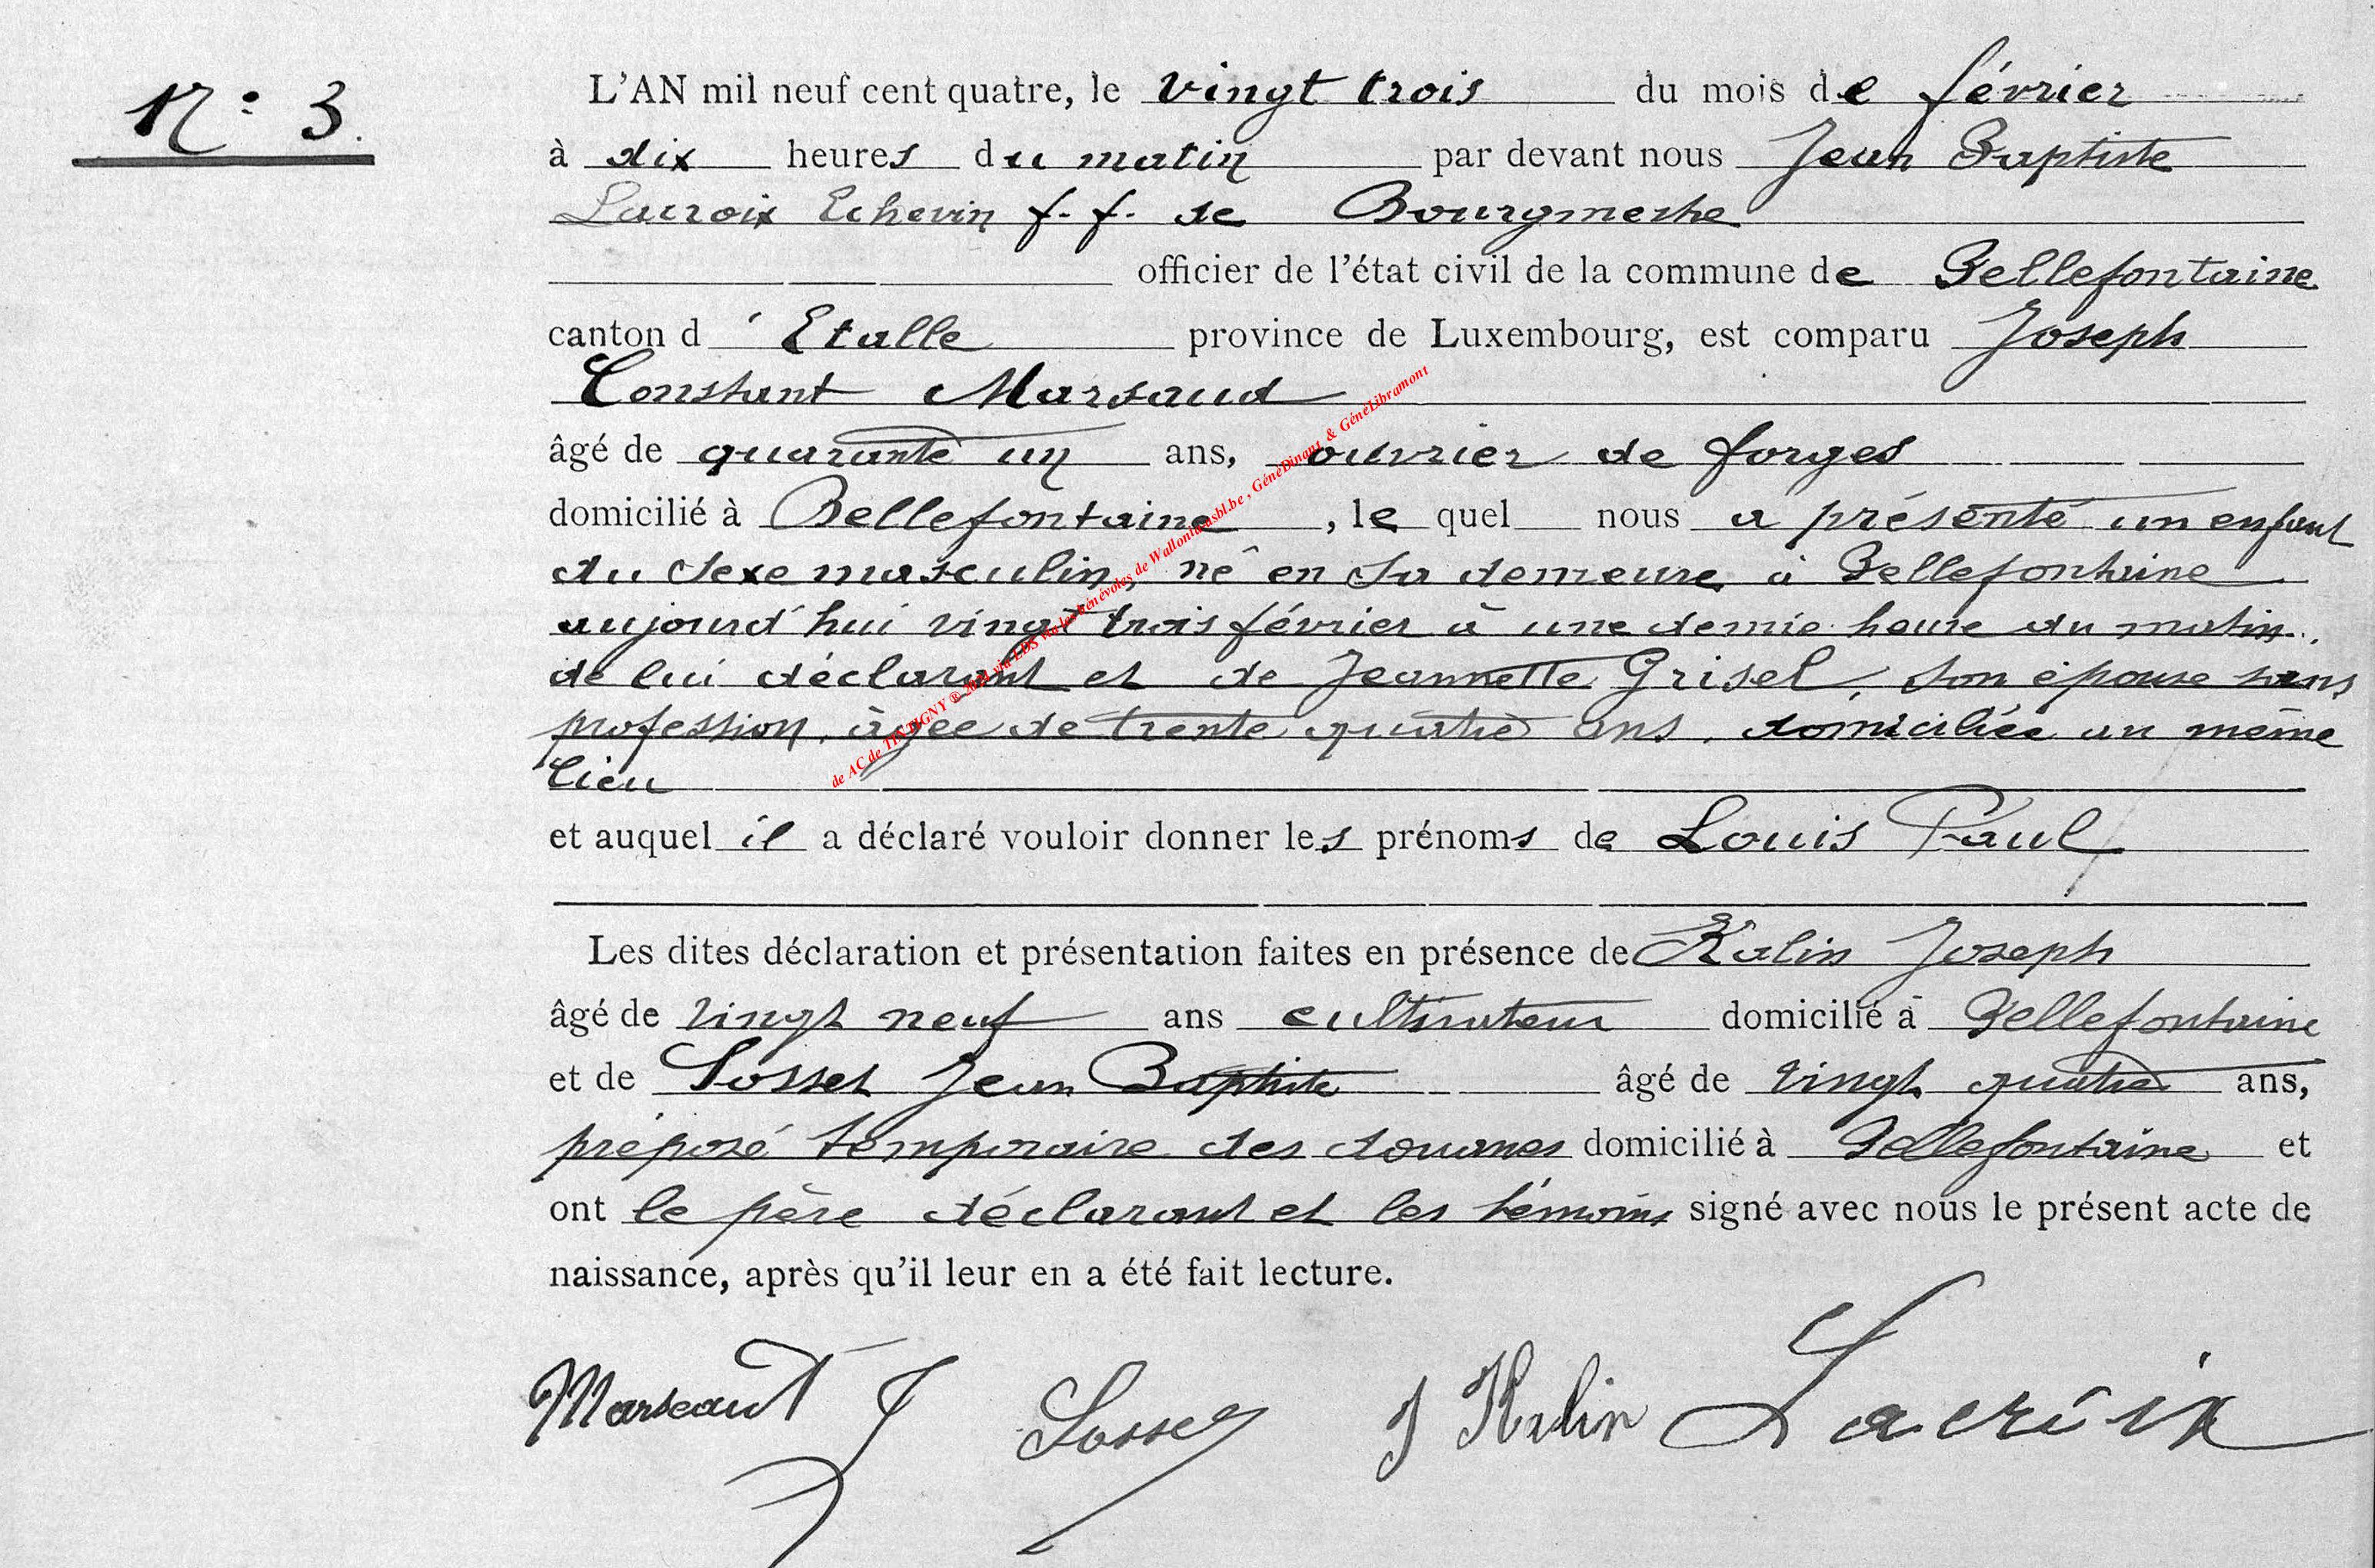 N° 3.
L'AN mil neuf cent quatre, le vingt trois du mois de février
à dix heures du matin par devant nous Jean Baptiste
Lacroix Echevin f.f. de Bourgmestre
officier de l'état civil de la commune de Bellefontaine
canton d'Etalle province de Luxembourg, est comparu Joseph
Constant Marsaud
âgé de quarante un ans, ouvrier de forges
domicilié à Bellefontaine, le quel nous a présenté un enfant
du sexe masculin, né en sa demeure à Bellefontaine
aujourd'hui vingt trois février à une demie heure du matin.
de lui déclarant et de Jeannette Grisel, son épouse sans
profession, âgée de trente quatre ans, domiciliée au même
lieu
et auquel il a déclaré vouloir donner les prénoms de Louis Paul
Les dites déclaration et présentation faites en présence de Kalin Joseph
âgé de vingt neuf ans cultivateur domicilié à Bellefontaine
et de Sosset Jean Baptiste âgé de vingt quatre ans,
préposé temporaire des douanes domicilié à Bellefontaine et
ont le père déclarant et les témoins signé avec nous le présent acte de
naissance, après qu'il leur en a été fait lecture.
Marseaut J Sosset J Kalin Lacroix
de AC de TINTIGNY ® via LDS via les Bénévoles de Wallonia asbl.be, GénéDinant & GénéLibramont